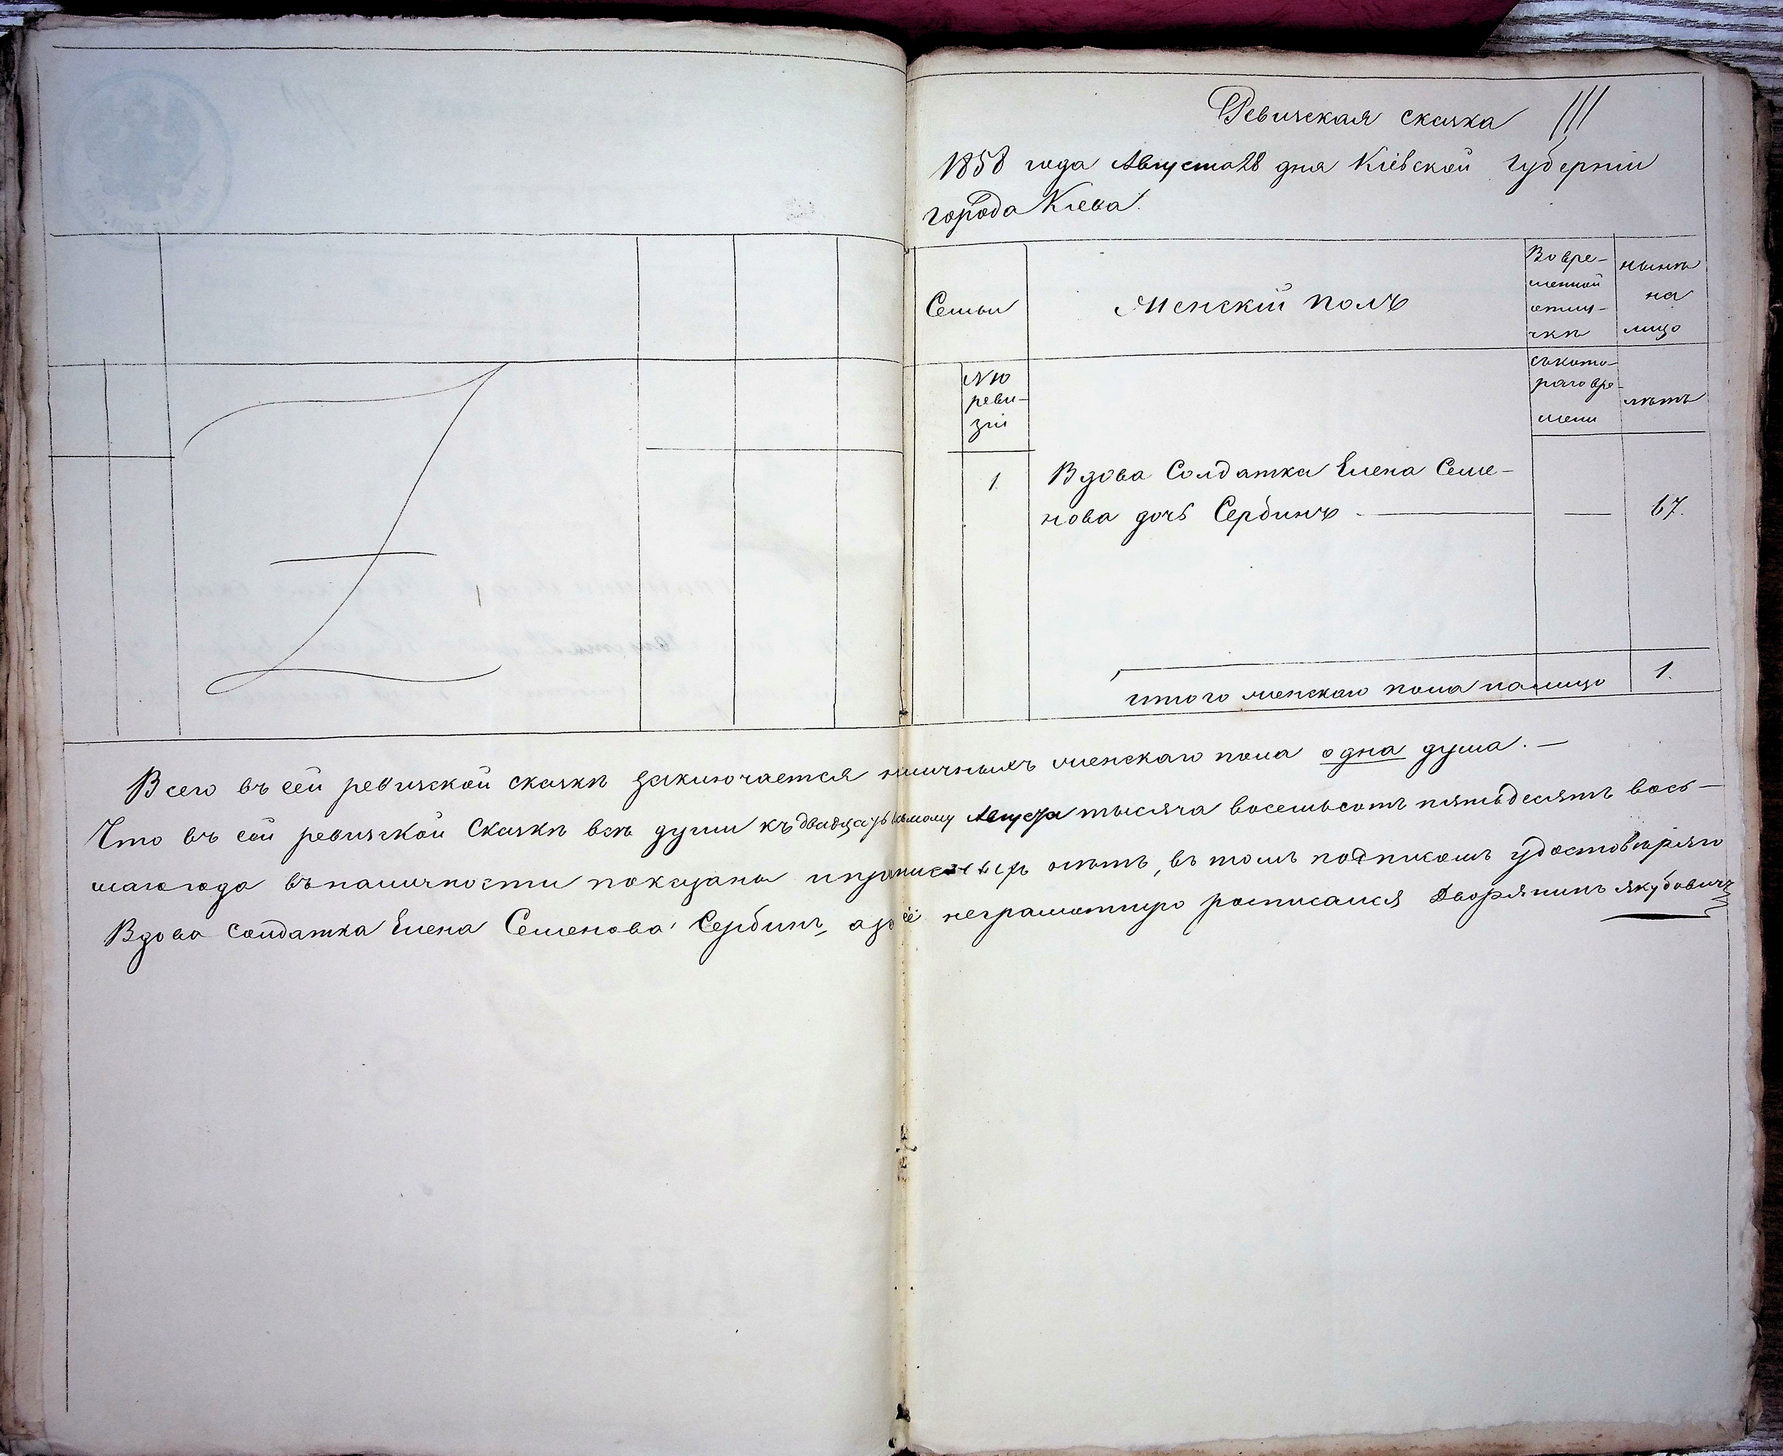 Ревижская скажка
1858 года Августа 28 дна Кіевской Губерніи
города Кіева.
Семьи
Женскій полъ
Во вре-
менной
отлу-
чкѣ
нынѣ
на
лицо
№ по
реви-
зіи
съ кото-
раго вре-
мени
лѣтъ
1.
Вдова Солдатка Елена Семе-
нова дочь Сербинъ. — — 67.
Итого женскаго пола налицо 1.
Всего въ сей ревижской скажкѣ заключается наличныхъ женскаго пола одна душа. —
Что въ сей ревижской Скажкѣ всѣ души къ двадцать осьмому Августа тысяча восемьсотъ пятьдесятъ вось-
маго года въ наличности показаны и прописныхъ нѣтъ, въ томъ подпискою удостовѣряю
Вдова солдатка Елена Семенова Сербинъ, а за её неграмотную росписался Дворянинъ Якубовичъ